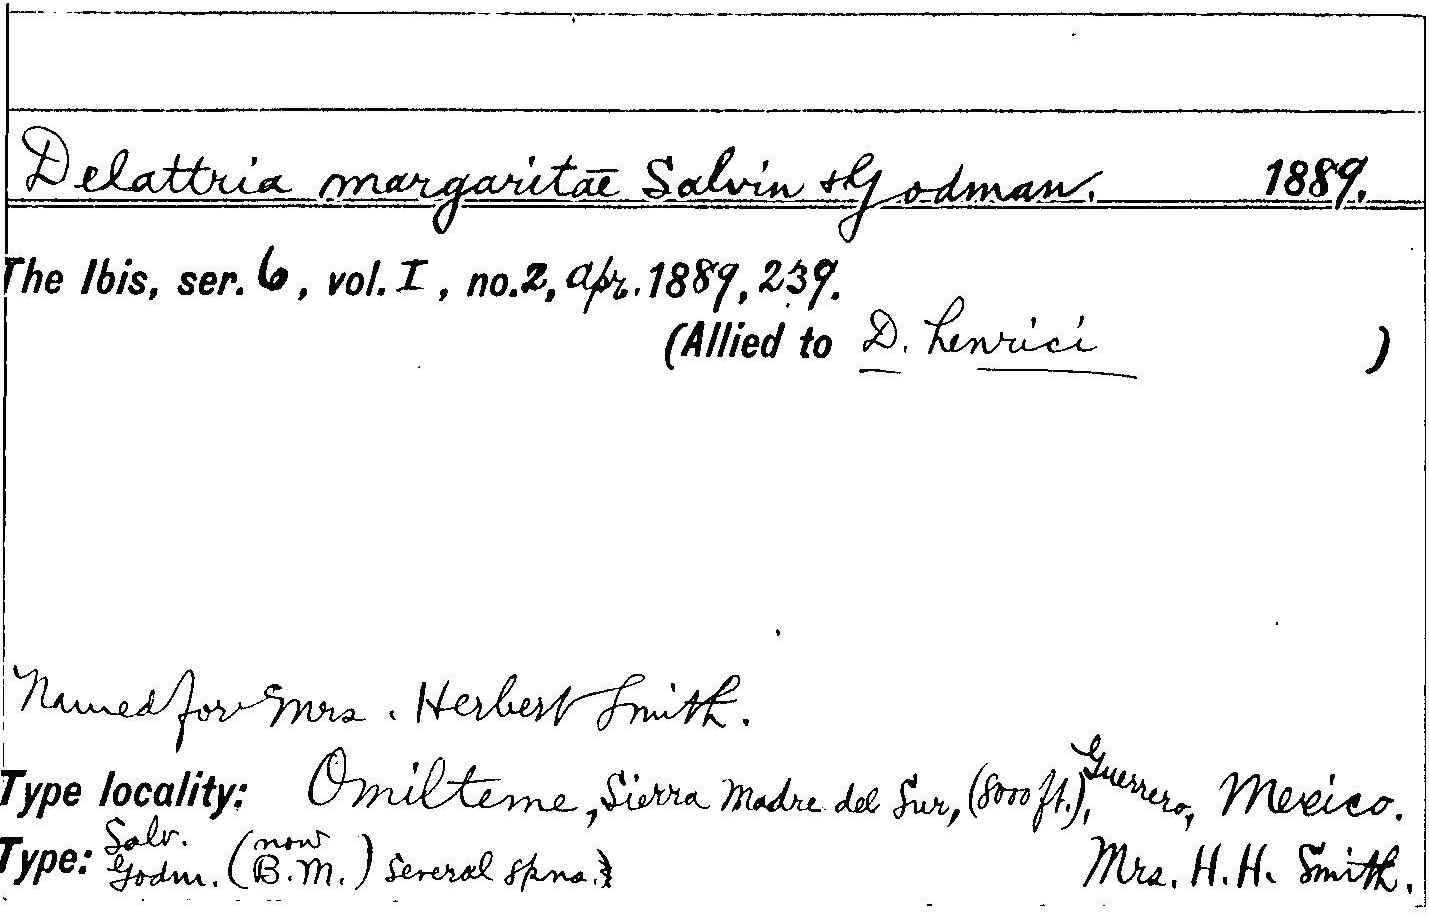 Delattria margaritae Salvin & Godman. 1889.
The Ibis, ser. 6, vol. I, no. 2, Apr. 1889, 239.
(Allied to D. henrici )
Named for Mrs. Herbert Smith.
Type locality: Omilteme, Sierra Madre del Sur, (8000 ft.), Guerrero, Mexico.
Type: Salv. Godm. (now B.M.) several spns. Mrs. H. H. Smith.